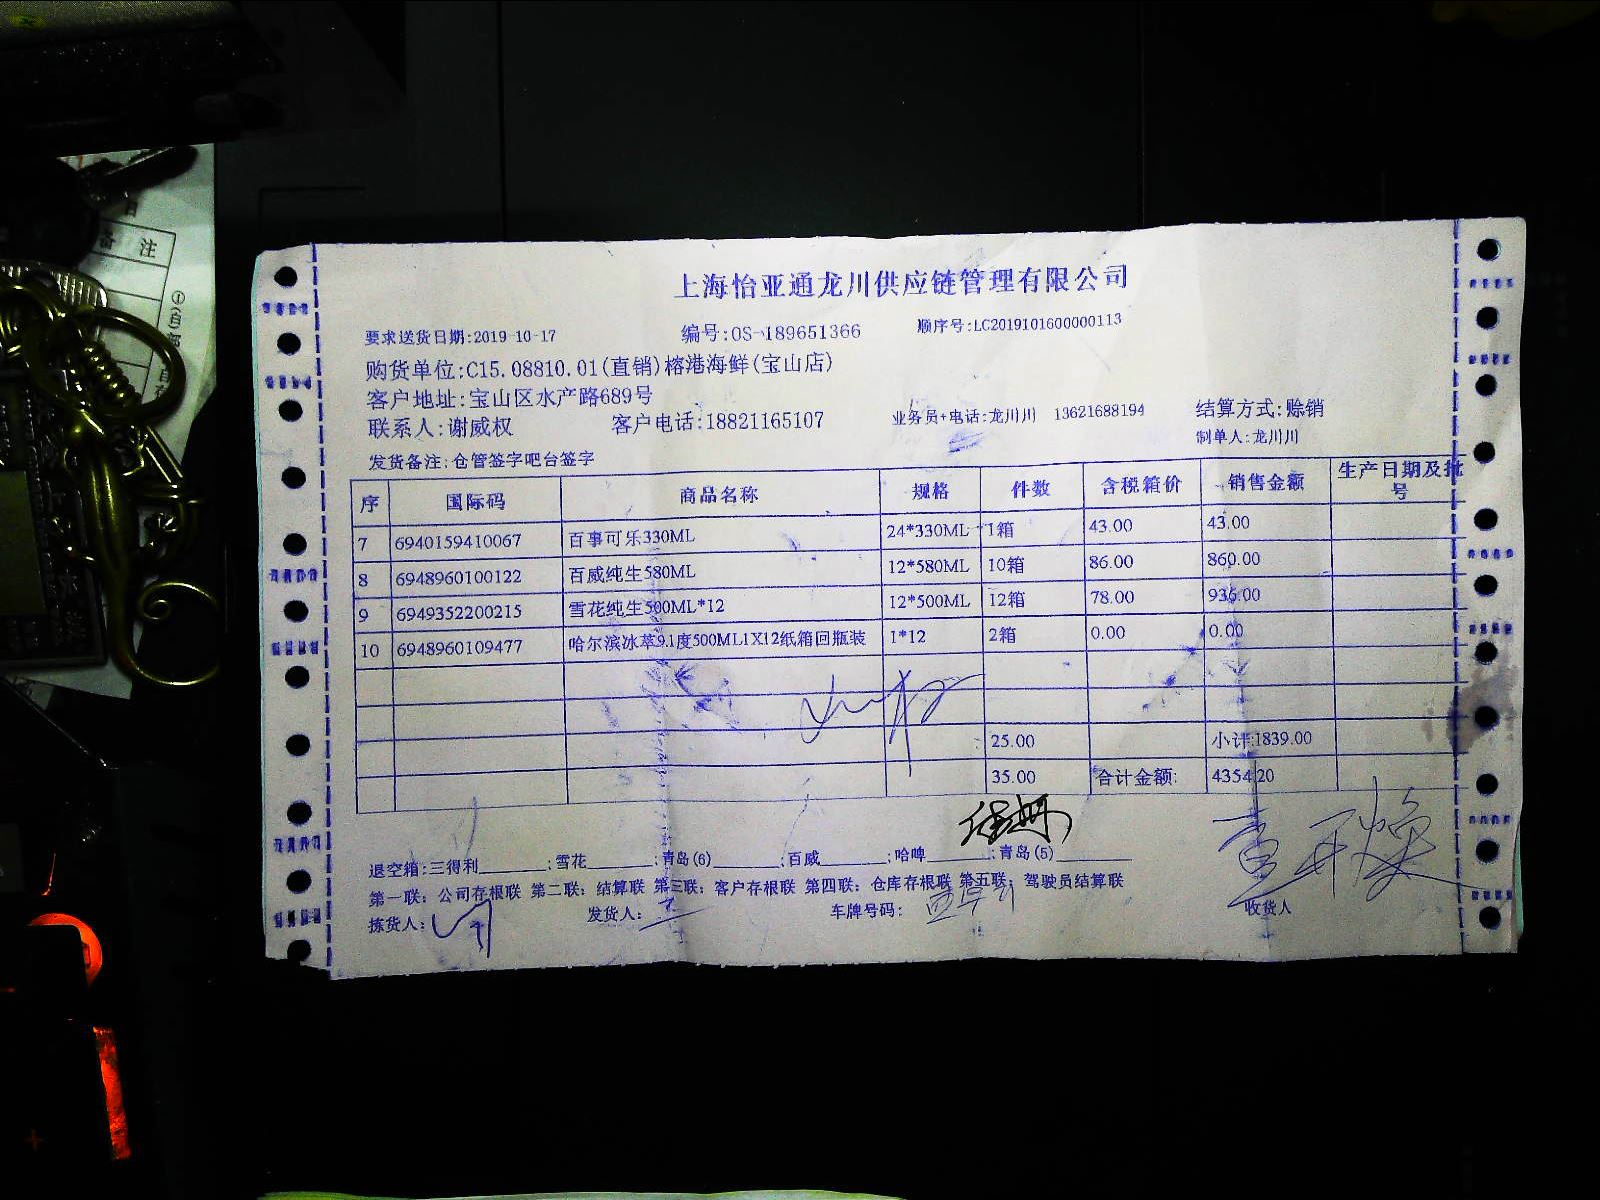 备 注
上海怡亚通龙川供应链管理有限公司
要求送货日期:2019-10-17 编号:OS-189651366 顺序号:LC2019101600000113
购货单位:C15.08810.01(直销)榕港海鲜(宝山店)
客户地址:宝山区水产路689号
联系人:谢威权 客户电话:18821165107 业务员+电话:龙川川 13621688194 结算方式:赊销
制单人:龙川川
发货备注:仓管签字吧台签字
序 国际码 商品名称 规格 件数 含税箱价 销售金额 生产日期及批号
7 6940159410067 百事可乐330ML 24*330ML 1箱 43.00 43.00
8 6948960100122 百威纯生580ML 12*580ML 10箱 86.00 860.00
9 6949352200215 雪花纯生500ML*12 12*500ML 12箱 78.00 936.00
10 6948960109477 哈尔滨冰萃9.1度500ML1X12纸箱回瓶装 1*12 2箱 0.00 0.00
25.00 小计:1839.00
35.00 合计金额: 4354.20
退空箱:三得利______;雪花______;青岛(6)______;百威______;哈啤______;青岛(5)______
第一联: 公司存根联 第二联: 结算联 第三联: 客户存根联 第四联: 仓库存根联 第五联: 驾驶员结算联
拣货人: 发货人: 车牌号码: 收货人